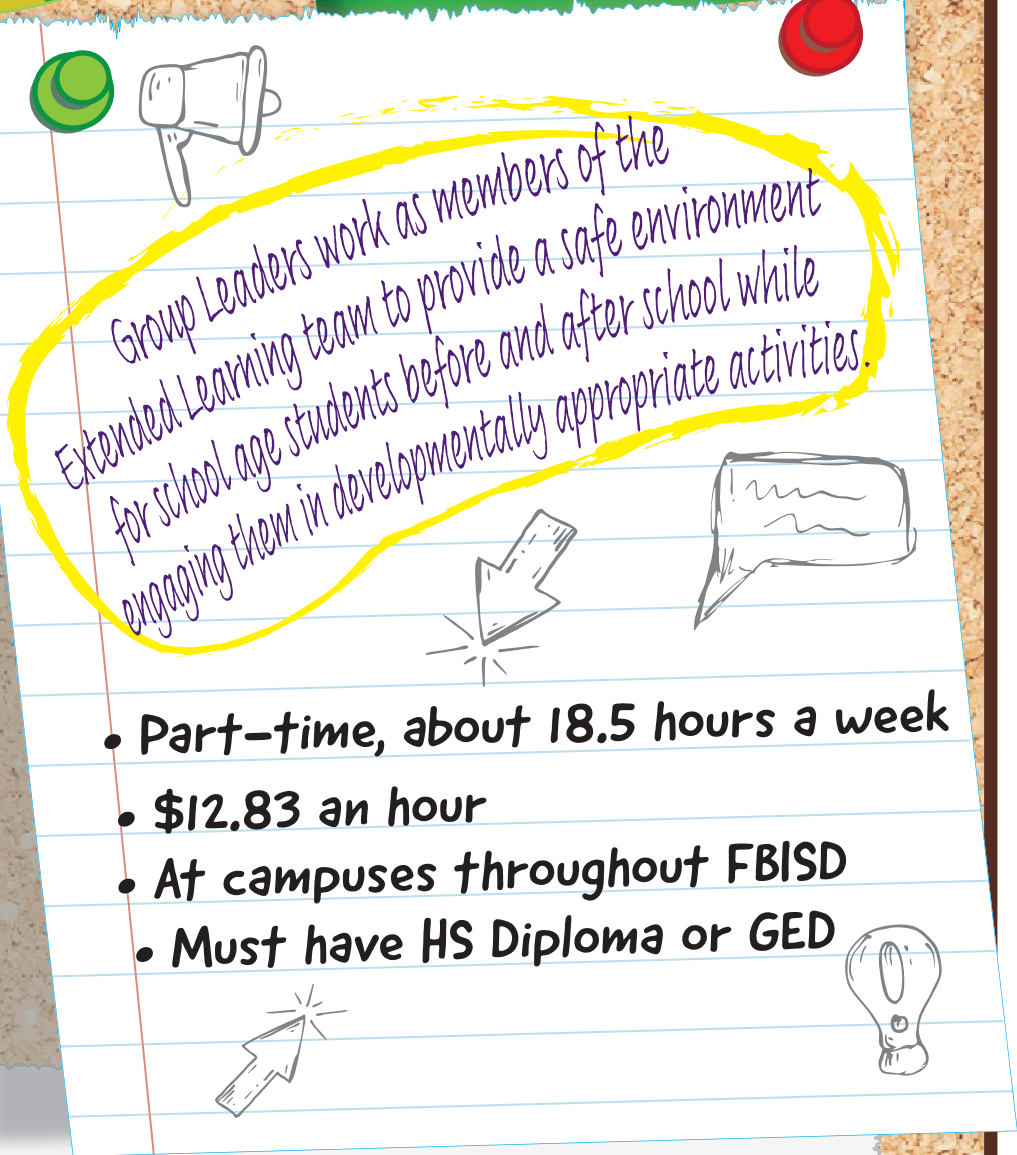 Group Leaders work as members of the
Extended Learning team to provide a safe environment
for school age students before and after school while
engaging them in developmentally appropriate activities.
• Part-time, about 18.5 hours a week
• $12.83 an hour
• At campuses throughout FBISD
• Must have HS Diploma or GED